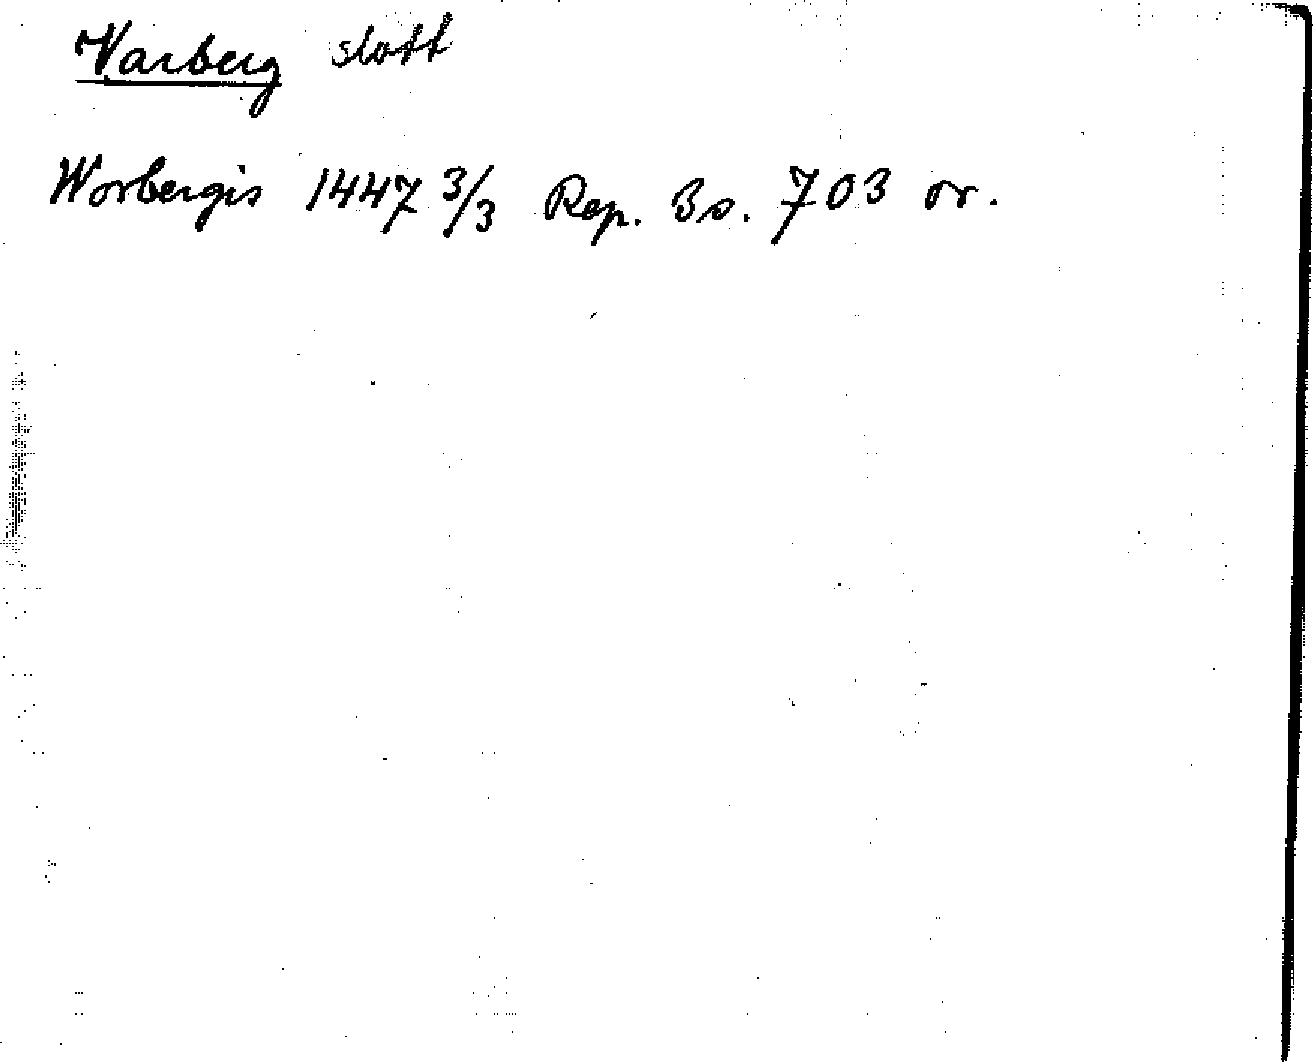 Varberg slott
Worbergis 1447 3/3 Rep. Bs. 703 or.